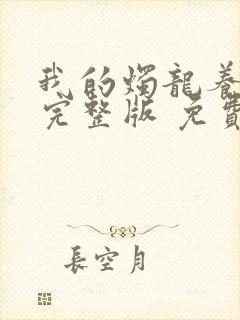 我的燭龍養
完整版 免費
長空月